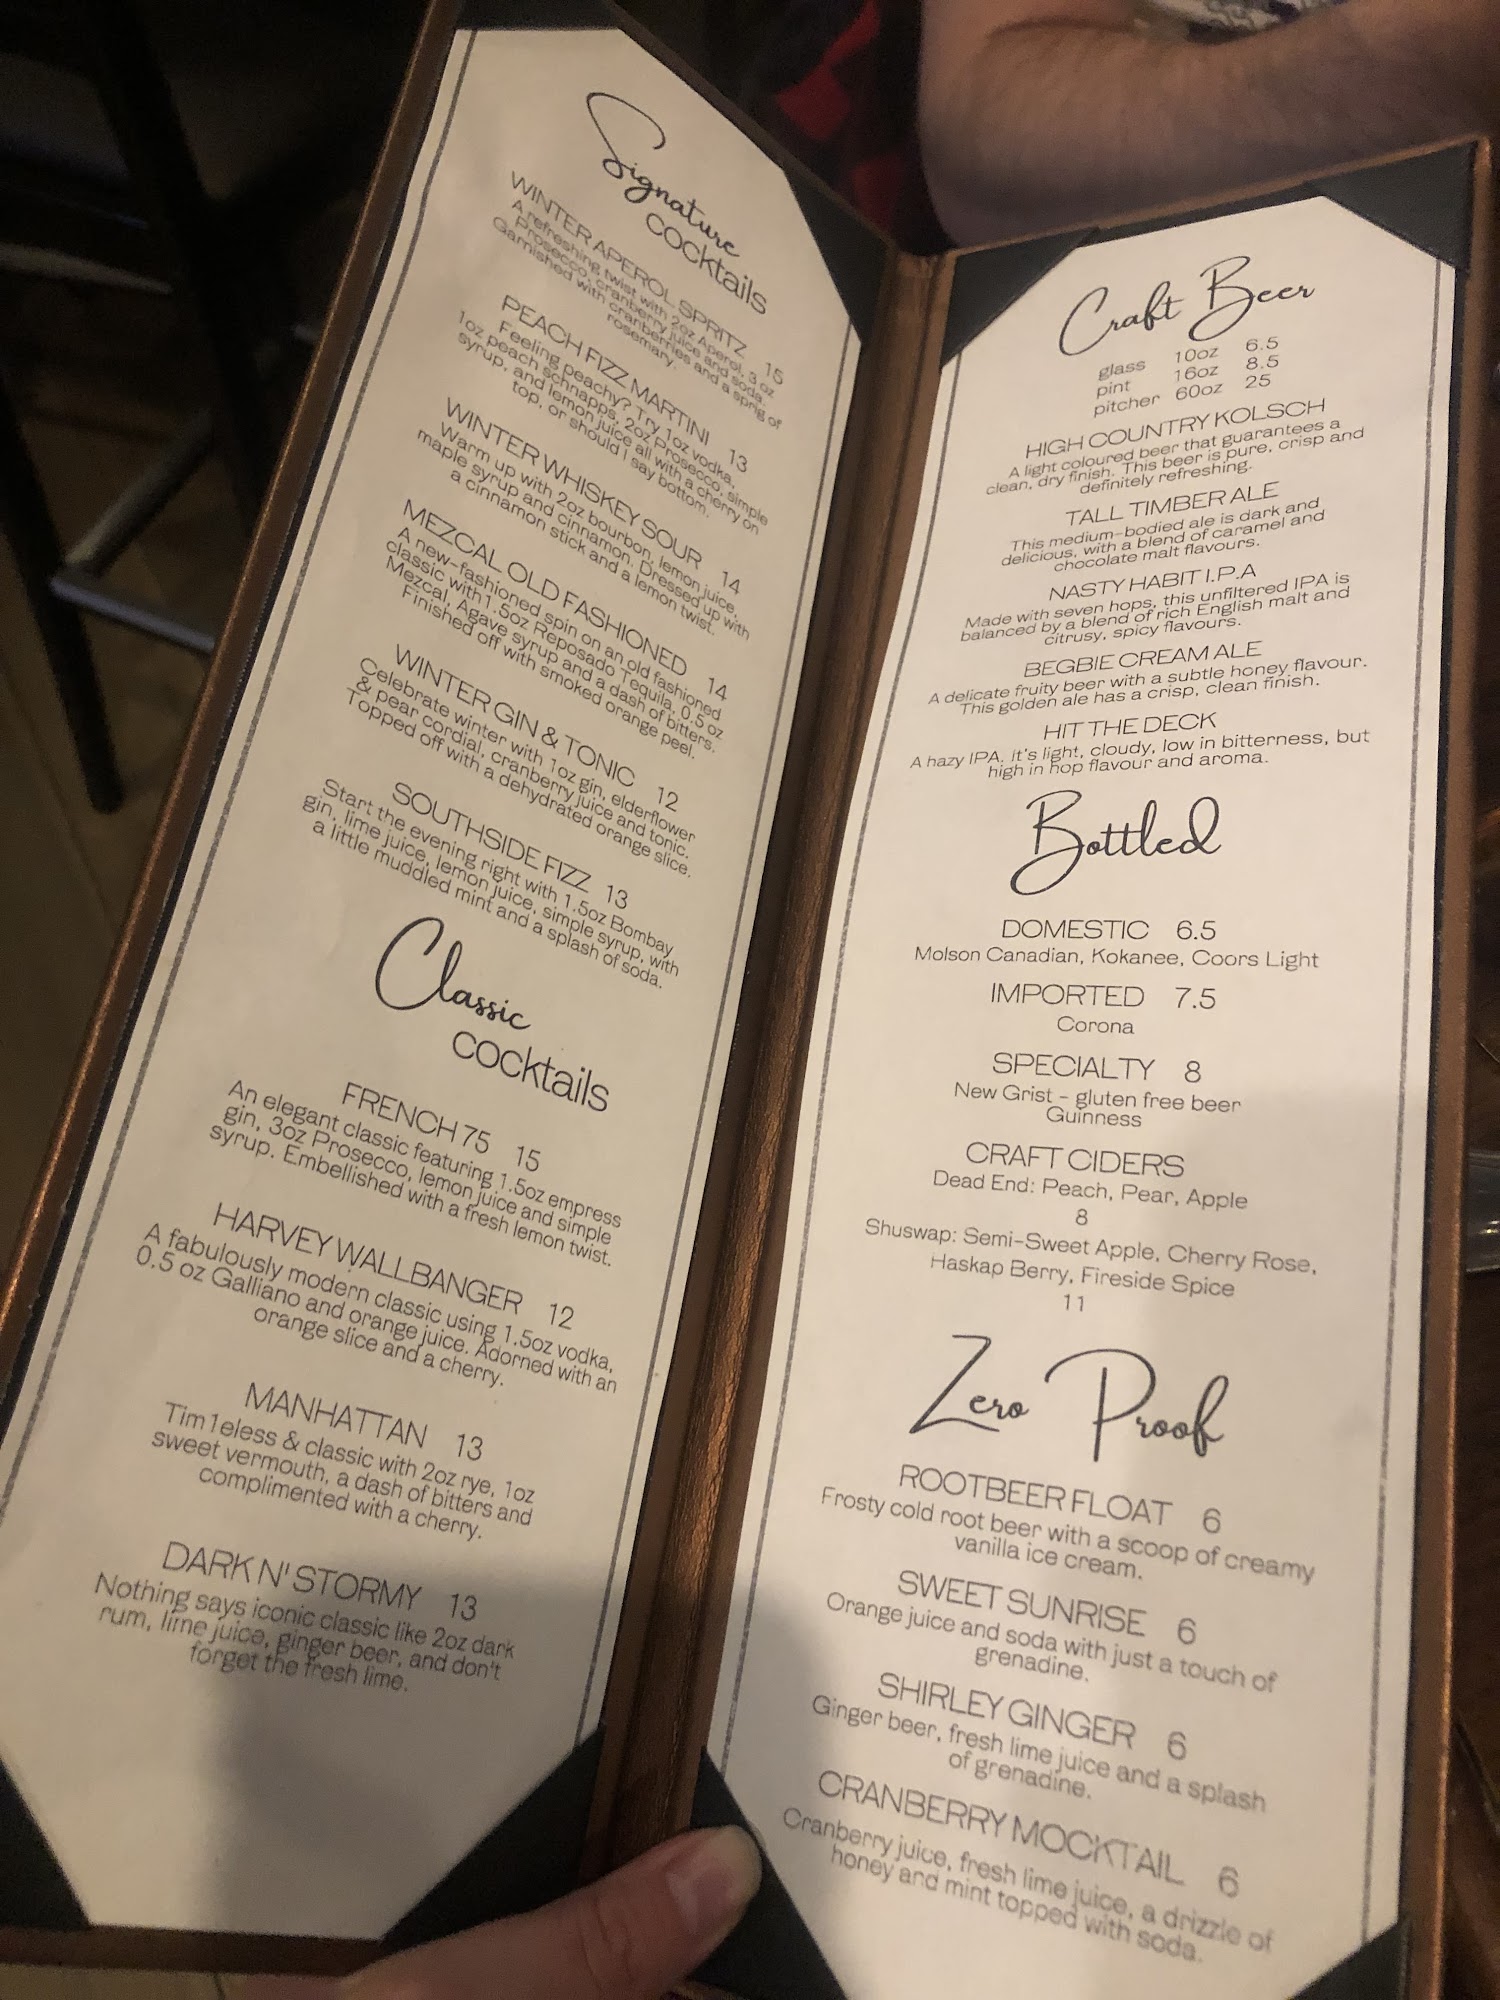 Signature
cocktails
WINTER APEROL SPRITZ 15
A refreshing twist with 2oz Aperol, 3 oz
Prosecco, cranberry juice and soda.
Garnished with cranberries and a sprig of
rosemary.
PEACH FIZZ MARTINI 13
Feeling peachy? Try 1oz vodka,
1oz peach schnapps, 2oz Prosecco, simple
syrup, and lemon juice all with a cherry on
top, or should I say bottom.
WINTER WHISKEY SOUR 14
Warm up with 2oz bourbon, lemon juice,
maple syrup and cinnamon. Dressed up with
a cinnamon stick and a lemon twist.
MEZCAL OLD FASHIONED 14
A new-fashioned spin on an old fashioned
classic with 1.5oz Reposado Tequila, 0.5 oz
Mezcal, Agave syrup and a dash of bitters.
Finished off with smoked orange peel.
WINTER GIN & TONIC 12
Celebrate winter with 1oz gin, elderflower
& pear cordial, cranberry juice and tonic.
Topped off with a dehydrated orange slice.
SOUTHSIDE FIZZ 13
Start the evening right with 1.5oz Bombay
gin, lime juice, lemon juice, simple syrup, with
a little muddled mint and a splash of soda.
Classic
cocktails
FRENCH 75 15
An elegant classic featuring 1.5oz empress
gin, 3oz Prosecco, lemon juice and simple
syrup. Embellished with a fresh lemon twist.
HARVEY WALLBANGER 12
A fabulously modern classic using 1.5oz vodka,
0.5 oz Galliano and orange juice. Adorned with an
orange slice and a cherry.
MANHATTAN 13
Tim1eless & classic with 2oz rye, 1oz
sweet vermouth, a dash of bitters and
complimented with a cherry.
DARK N' STORMY 13
Nothing says iconic classic like 2oz dark
rum, lime juice, ginger beer, and don't
forget the fresh lime.
Craft Beer
glass 10oz 6.5
pint 16oz 8.5
pitcher 60oz 25
HIGH COUNTRY KOLSCH
A light coloured beer that guarantees a
clean, dry finish. This beer is pure, crisp and
definitely refreshing.
TALL TIMBER ALE
This medium-bodied ale is dark and
delicious, with a blend of caramel and
chocolate malt flavours.
NASTY HABIT I.P.A
Made with seven hops, this unfiltered IPA is
balanced by a blend of rich English malt and
citrusy, spicy flavours.
BEGBIE CREAM ALE
A delicate fruity beer with a subtle honey flavour.
This golden ale has a crisp, clean finish.
HIT THE DECK
A hazy IPA. it's light, cloudy, low in bitterness, but
high in hop flavour and aroma.
Bottled
DOMESTIC 6.5
Molson Canadian, Kokanee, Coors Light
IMPORTED 7.5
Corona
SPECIALTY 8
New Grist - gluten free beer
Guinness
CRAFT CIDERS
Dead End: Peach, Pear, Apple
8
Shuswap: Semi-Sweet Apple, Cherry Rose,
Haskap Berry, Fireside Spice
11
Zero Proof
ROOTBEER FLOAT 6
Frosty cold root beer with a scoop of creamy
vanilla ice cream.
SWEET SUNRISE 6
Orange juice and soda with just a touch of
grenadine.
SHIRLEY GINGER 6
Ginger beer, fresh lime juice and a splash
of grenadine.
CRANBERRY MOCKTAIL 6
Cranberry juice, fresh lime juice, a drizzle of
honey and mint topped with soda.